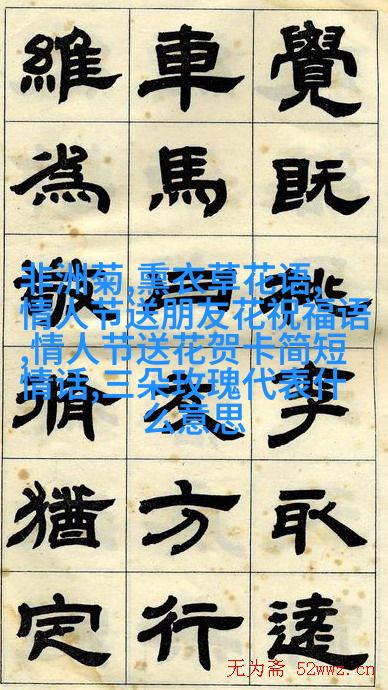 覺既取達
車馬友方行
維為脩猶定
非洲菊,熏衣草花语,
情人节送朋友花祝福语
,情人节送花贺卡简短
情话,三朵玫瑰代表什
么意思
无为斋 52wwz.cn